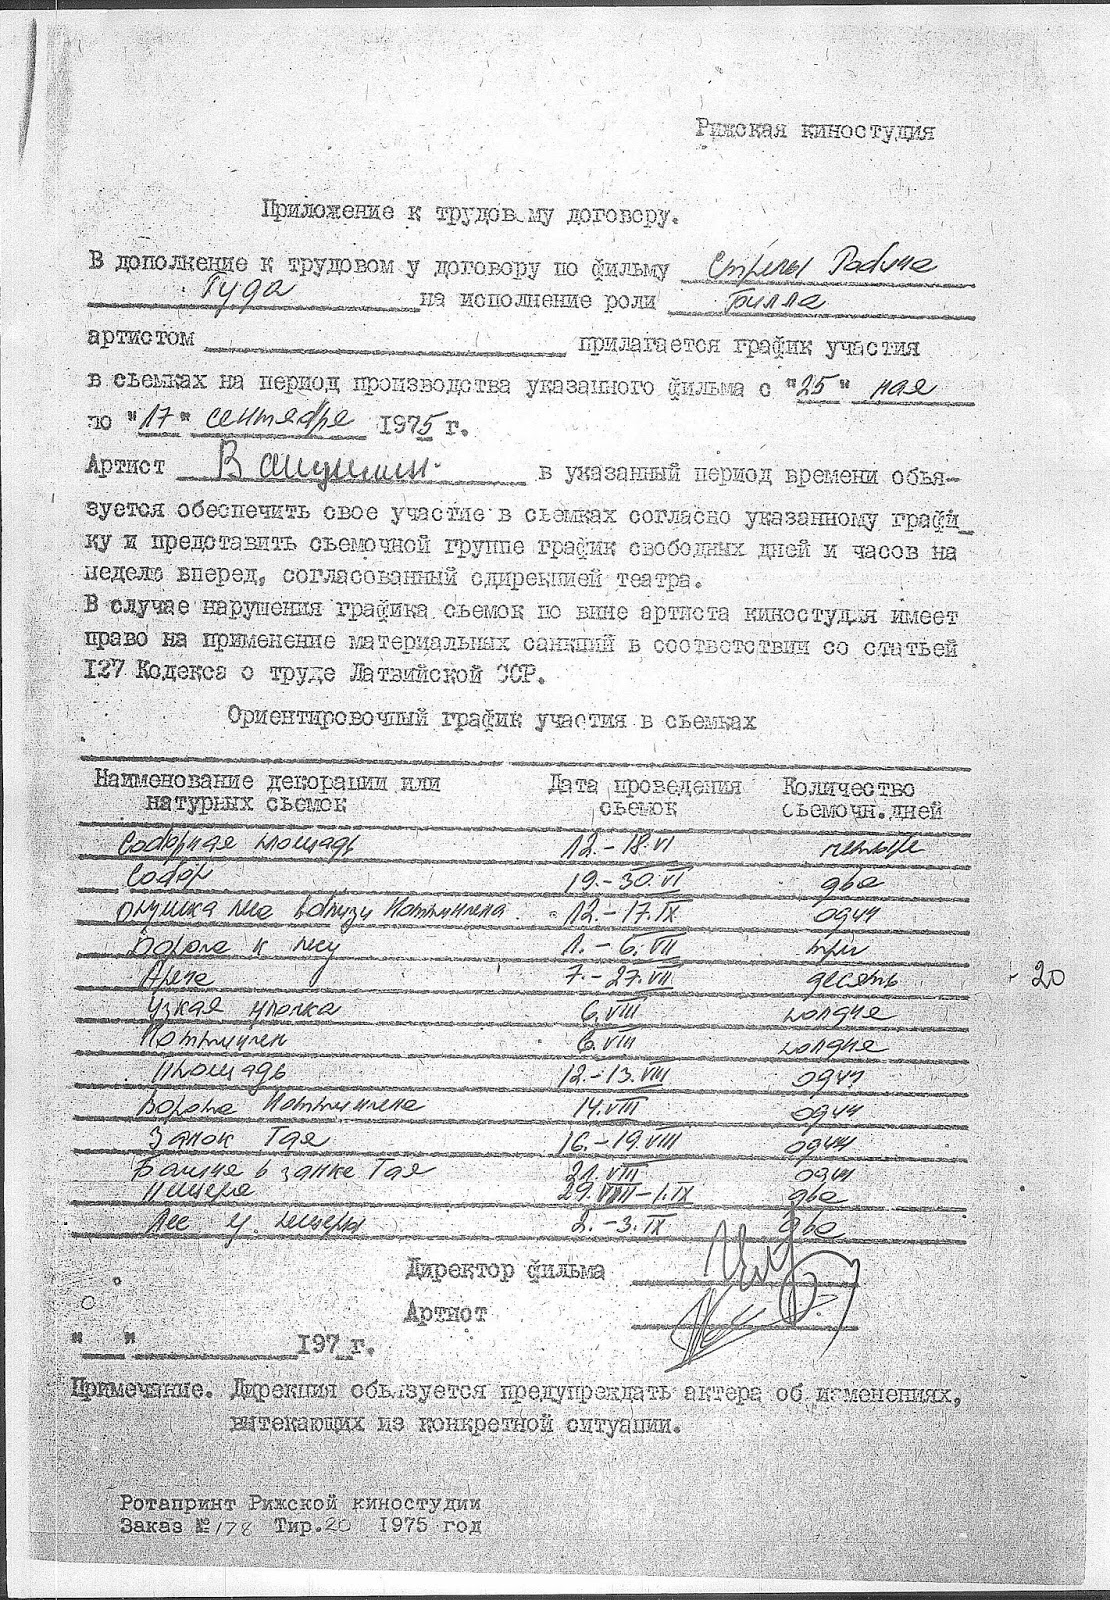 Рижская киностудия
Приложение к трудов му договору.
В дополнение к трудовом у договору по фильму Стрелы Робина
Гуда на исполнение роли Билла
артистом прилагается график участия
в сьемках на период производства указанного фильма с "25" мая
по "17" сентября 1975 г.
Артист в указанный период времени обья-
зуется обеспечить свое участие в сьемках согласно указанному графи
ку и представить сьемочной группе график свободных дней и часов на
неделю вперед, согласованный сдирекцией театра.
В случае нарушения графика сьемок по вине артиста киностудия имеет
право на применение материальных санкций в соответствии со статьей
127 Кодекса о труде Латвийской ССР.
Ориентировочный график участия в сьемках
Наименование декорации или Дата проведения Количество
натурных сьемок сьемок сьемочн.дней
Соборная площадь 12.-18.VI четыре
Собор 19.-30.VI два
Опушка леса вблизи Ноттингема 12.-17.IX один
Дорога к лесу 1.-6.VII три
Арена 7.-27.VII десять - 20
Узкая улочка 6.VIII полдня
Ноттингем 6.VIII полдня
Площадь 12.-13.VIII один
Ворота Ноттингема 14.VIII один
Замок Гая 16.-19.VIII один
Башня в замке Гая 21.VIII один
Пещера 29.VIII-1.IX два
Лес у пещеры 2.-3.IX два
Директор фильма
Артист
" " 197 г.
Примечание. Дирекция обязуется предупреждать актера об изменениях,
вытекающих из конкретной ситуации.
Ротапринт Рижской киностудии
Заказ №178 Тир.20 1975 год